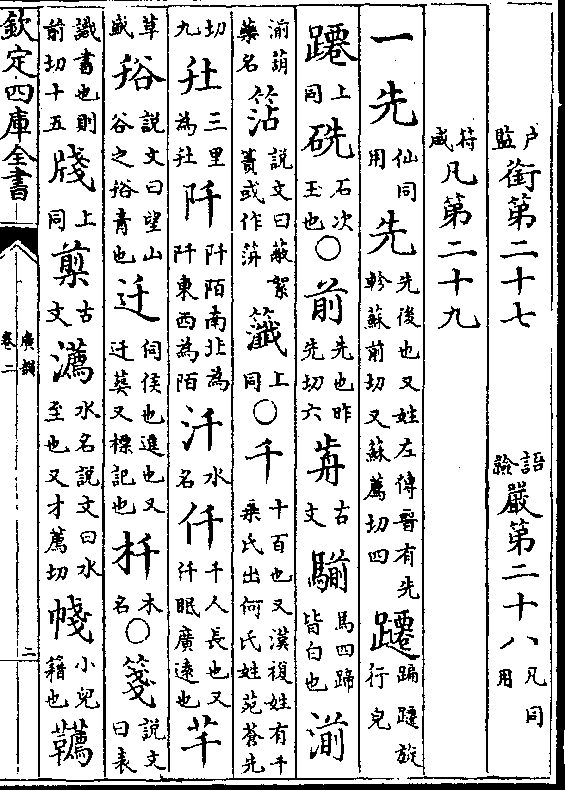 戶監銜第二十七 語𩏂嚴第二十八凡同用
符咸凡第二十九
一先仙同用先先後也又姓左傳晉有先軫蘇前切又蘇薦切四蹮蹁蹮旋行皃
𨇤上同硑石次玉也○前先也昨先切六歬古文騚馬四蹄皆白也湔
湔葫藥名䈴說文曰蔽絮簀或作䈴籤上同○千十百也又漢複姓有千乘氏出何氏姓苑蒼先
切九圱三里為圱阡阡陌南北為阡東西為陌汘水名仟千人長也又仟眠廣遠也芊
草盛谸說文曰望山谷之谸青也迁伺候也進也又迁葬又標記也杄木名○箋說文曰表
識書也則前切十五牋上同𣜭古文瀳水名說文曰水至也又才薦切帴小兒籍也韉
欽定四庫全書 廣韻 卷二 二